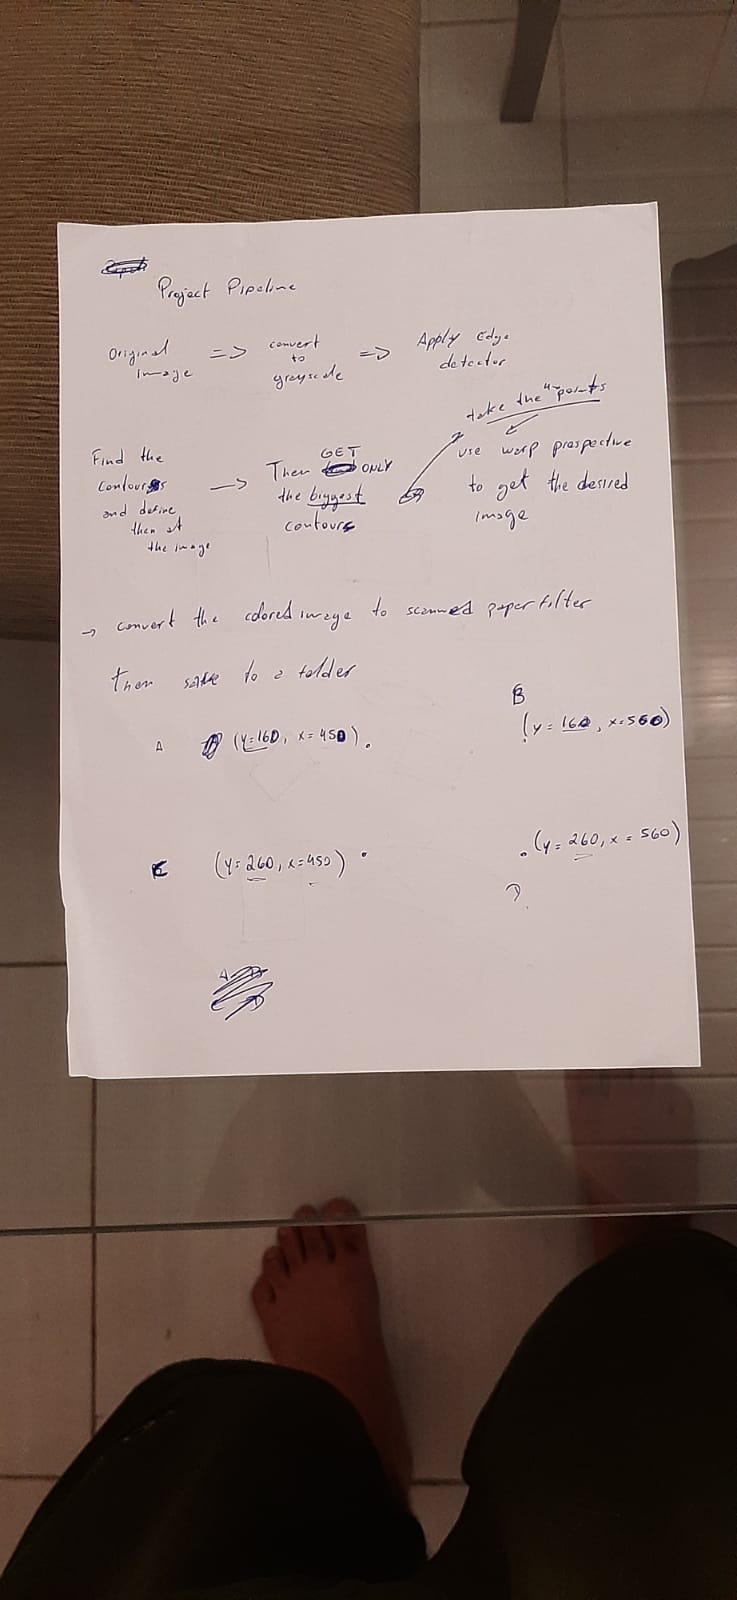 Project Pipeline
Original
image
=> convert
to
grayscale
=> Apply Edge
detector
Find the
contours
and define
them at
the image
→ Then GET ONLY
the biggest
contours
take the 4 points
use warp prespective
to get the desired
image
→ convert the colored image to scanned paper filter
then save to a folder
A (y=160, x=450).
B
(y=160, x=560)
C (y=260, x=450) .
. (y=260, x=560)